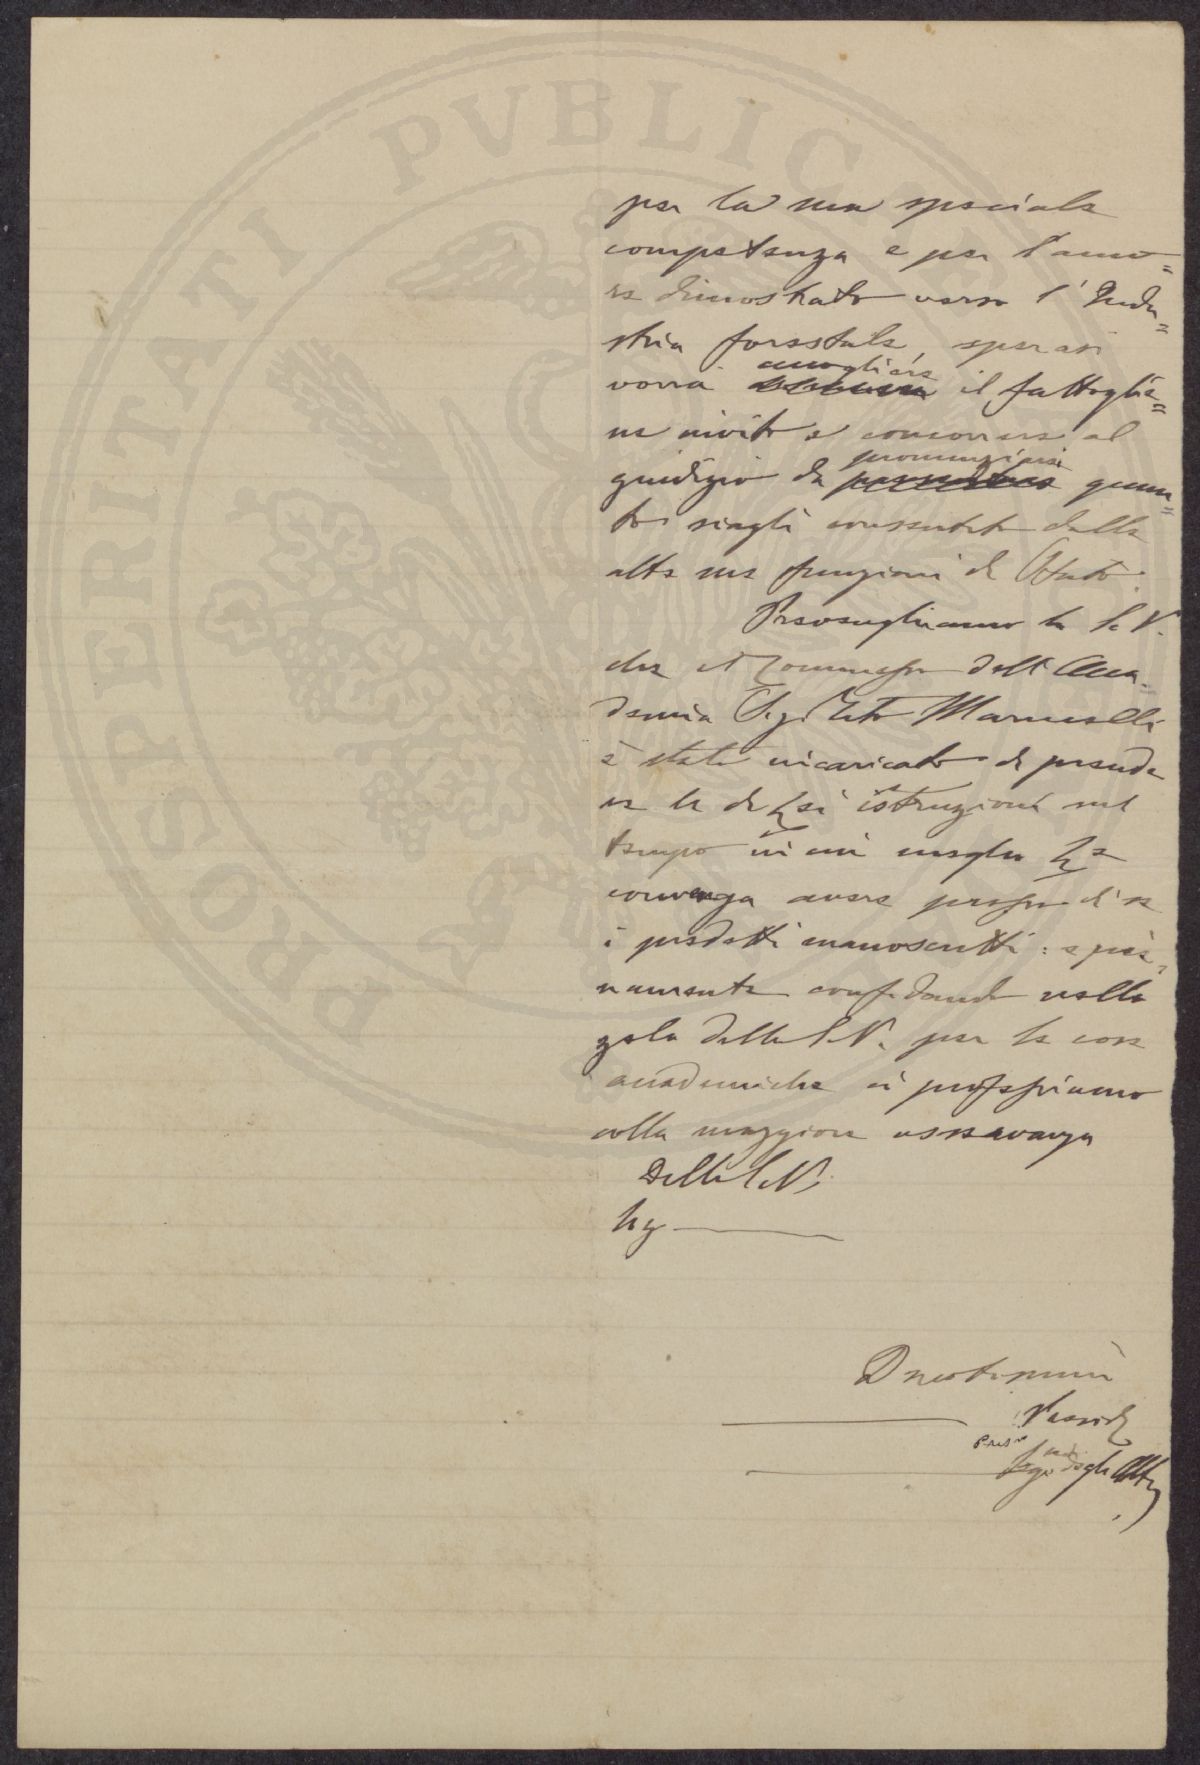 PROSPERITATI PVBLICAE
per la sua speciale
competenza e per l'amo=
re dimostrato verso l'Indu=
stria forestale, sperasi
vorrà accogliere il fattogli=
ne invito e concorrere al
giudizio da pronunziarsi quan=
to siagli consentito dalle
alte sue funzioni di Stato.
Prevenghiamo la S. V.
che il Commesso dell'Acca-
demia Sig. Marucelli
è stato incaricato di prende
re le di Lei istruzioni sul
tempo in cui meglio Le
convenga avere presso di se
i predetti manoscritti: e pie-
namente confidando nello
zelo della S. V. per le cose
accademiche ci professiamo
colla maggiore osservanza
Della S. V.
Devotissimi
Il Presid
Il Seg. degli Atti